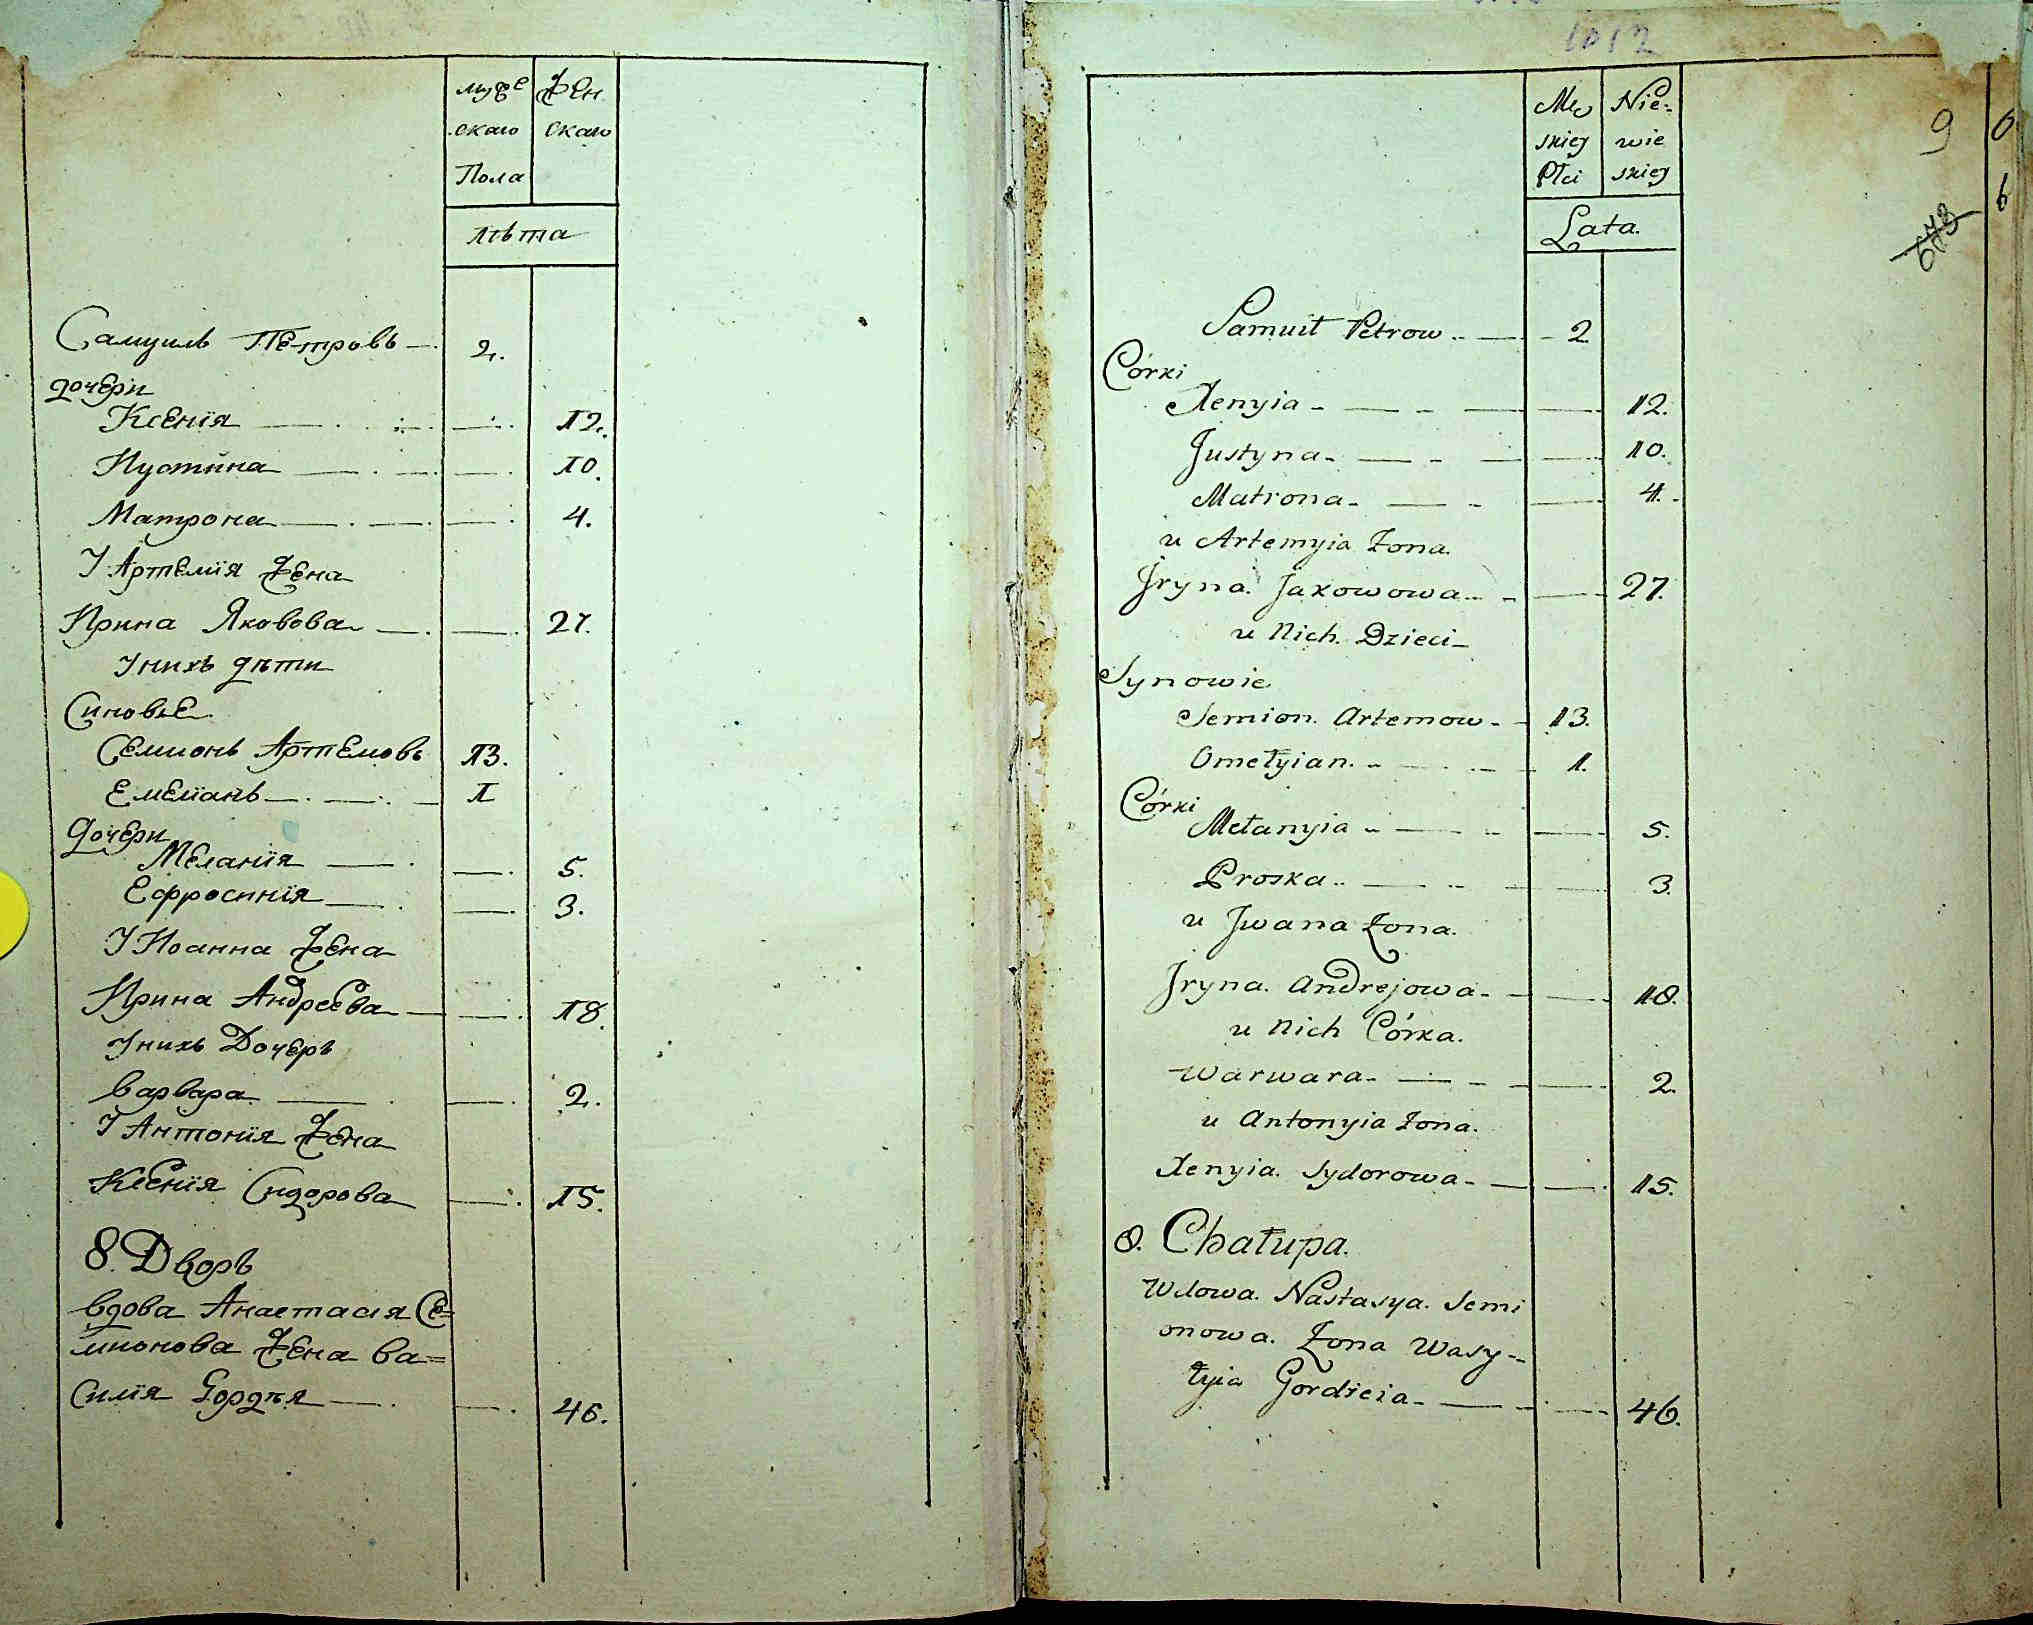 муже Жен
скаго скаго
Пола
лѣта
Самуилъ Петровъ — 2.
дочери
Ксенія — 12.
Иустина — 10.
Матрона — 4.
І Артемія Жена
Ирина Яковова — 27.
І нихъ дѣти
Синовье
Семионъ Артемовъ 13.
Емеліанъ — 1
дочери
Меланія — 5.
Ефросинія — 3.
І Иоанна Жена
Ирина Андреева — 18.
І нихъ Дочеръ
Варвара — 2.
І Антонія Жена
Ксенія Сидорова — 15.
8. Дворъ
Вдова Анастасія Се=
мионова Жена Ва=
силія Гордѣя — 46.
1012
Mę Nie-
skiej wie
Płci skiej
Lata.
9
6
673
Samuił Petrow — 2
Córki
Xenyia — 12.
Justyna — 10.
Matrona — 4.
u Artemyia Żona.
Jryna Jakowowa — 27.
u Nich Dzieci
Synowie
Semion Artemow — 13.
Omełyian — 1.
Córki
Mełanyia — 5.
Proska — 3.
u Jwana Żona.
Jryna Andrejowa — 18.
u Nich Córka.
Warwara — 2.
u Antonyia Żona.
Xenyia Sydorowa — 15.
8. Chałupa.
Wdowa Nastasya Semi
onowa Żona Wasy-
łyia Gordieia — 46.